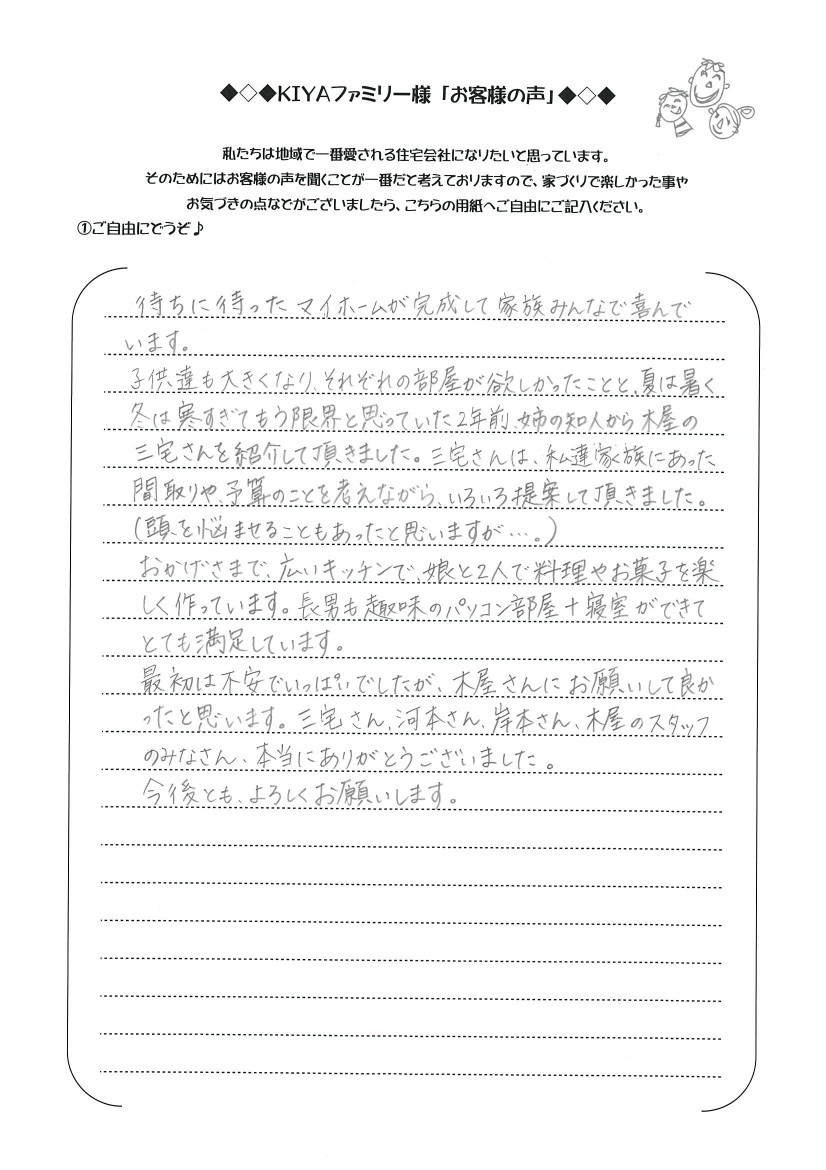 ◆◇◆KIYAファミリー様「お客様の声」◆◇◆
私たちは地域で一番愛される住宅会社になりたいと思っています。
そのためにはお客様の声を聞くことが一番だと考えておりますので、家づくりで楽しかった事や
お気づきの点などがございましたら、こちらの用紙へご自由にご記入ください。
①ご自由にどうぞ♪
待ちに待ったマイホームが完成して家族みんなで喜んで
います。
子供達も大きくなり、それぞれの部屋が欲しかったことと、夏は暑く
冬は寒すぎてもう限界と思っていた2年前、姉の知人から木屋の
三宅さんを紹介して頂きました。三宅さんは、私達家族にあった
間取りや、予算のことを考えながら、いろいろ提案して頂きました。
(頭を悩ませることもあったと思いますが…。)
おかげさまで、広いキッチンで、娘と2人で料理やお菓子を楽
しく作っています。長男も趣味のパソコン部屋+寝室ができて
とても満足しています。
最初は不安でいっぱいでしたが、木屋さんにお願いして良か
ったと思います。三宅さん、河本さん、岸本さん、木屋のスタッフ
のみなさん、本当にありがとうございました。
今後とも、よろしくお願いします。